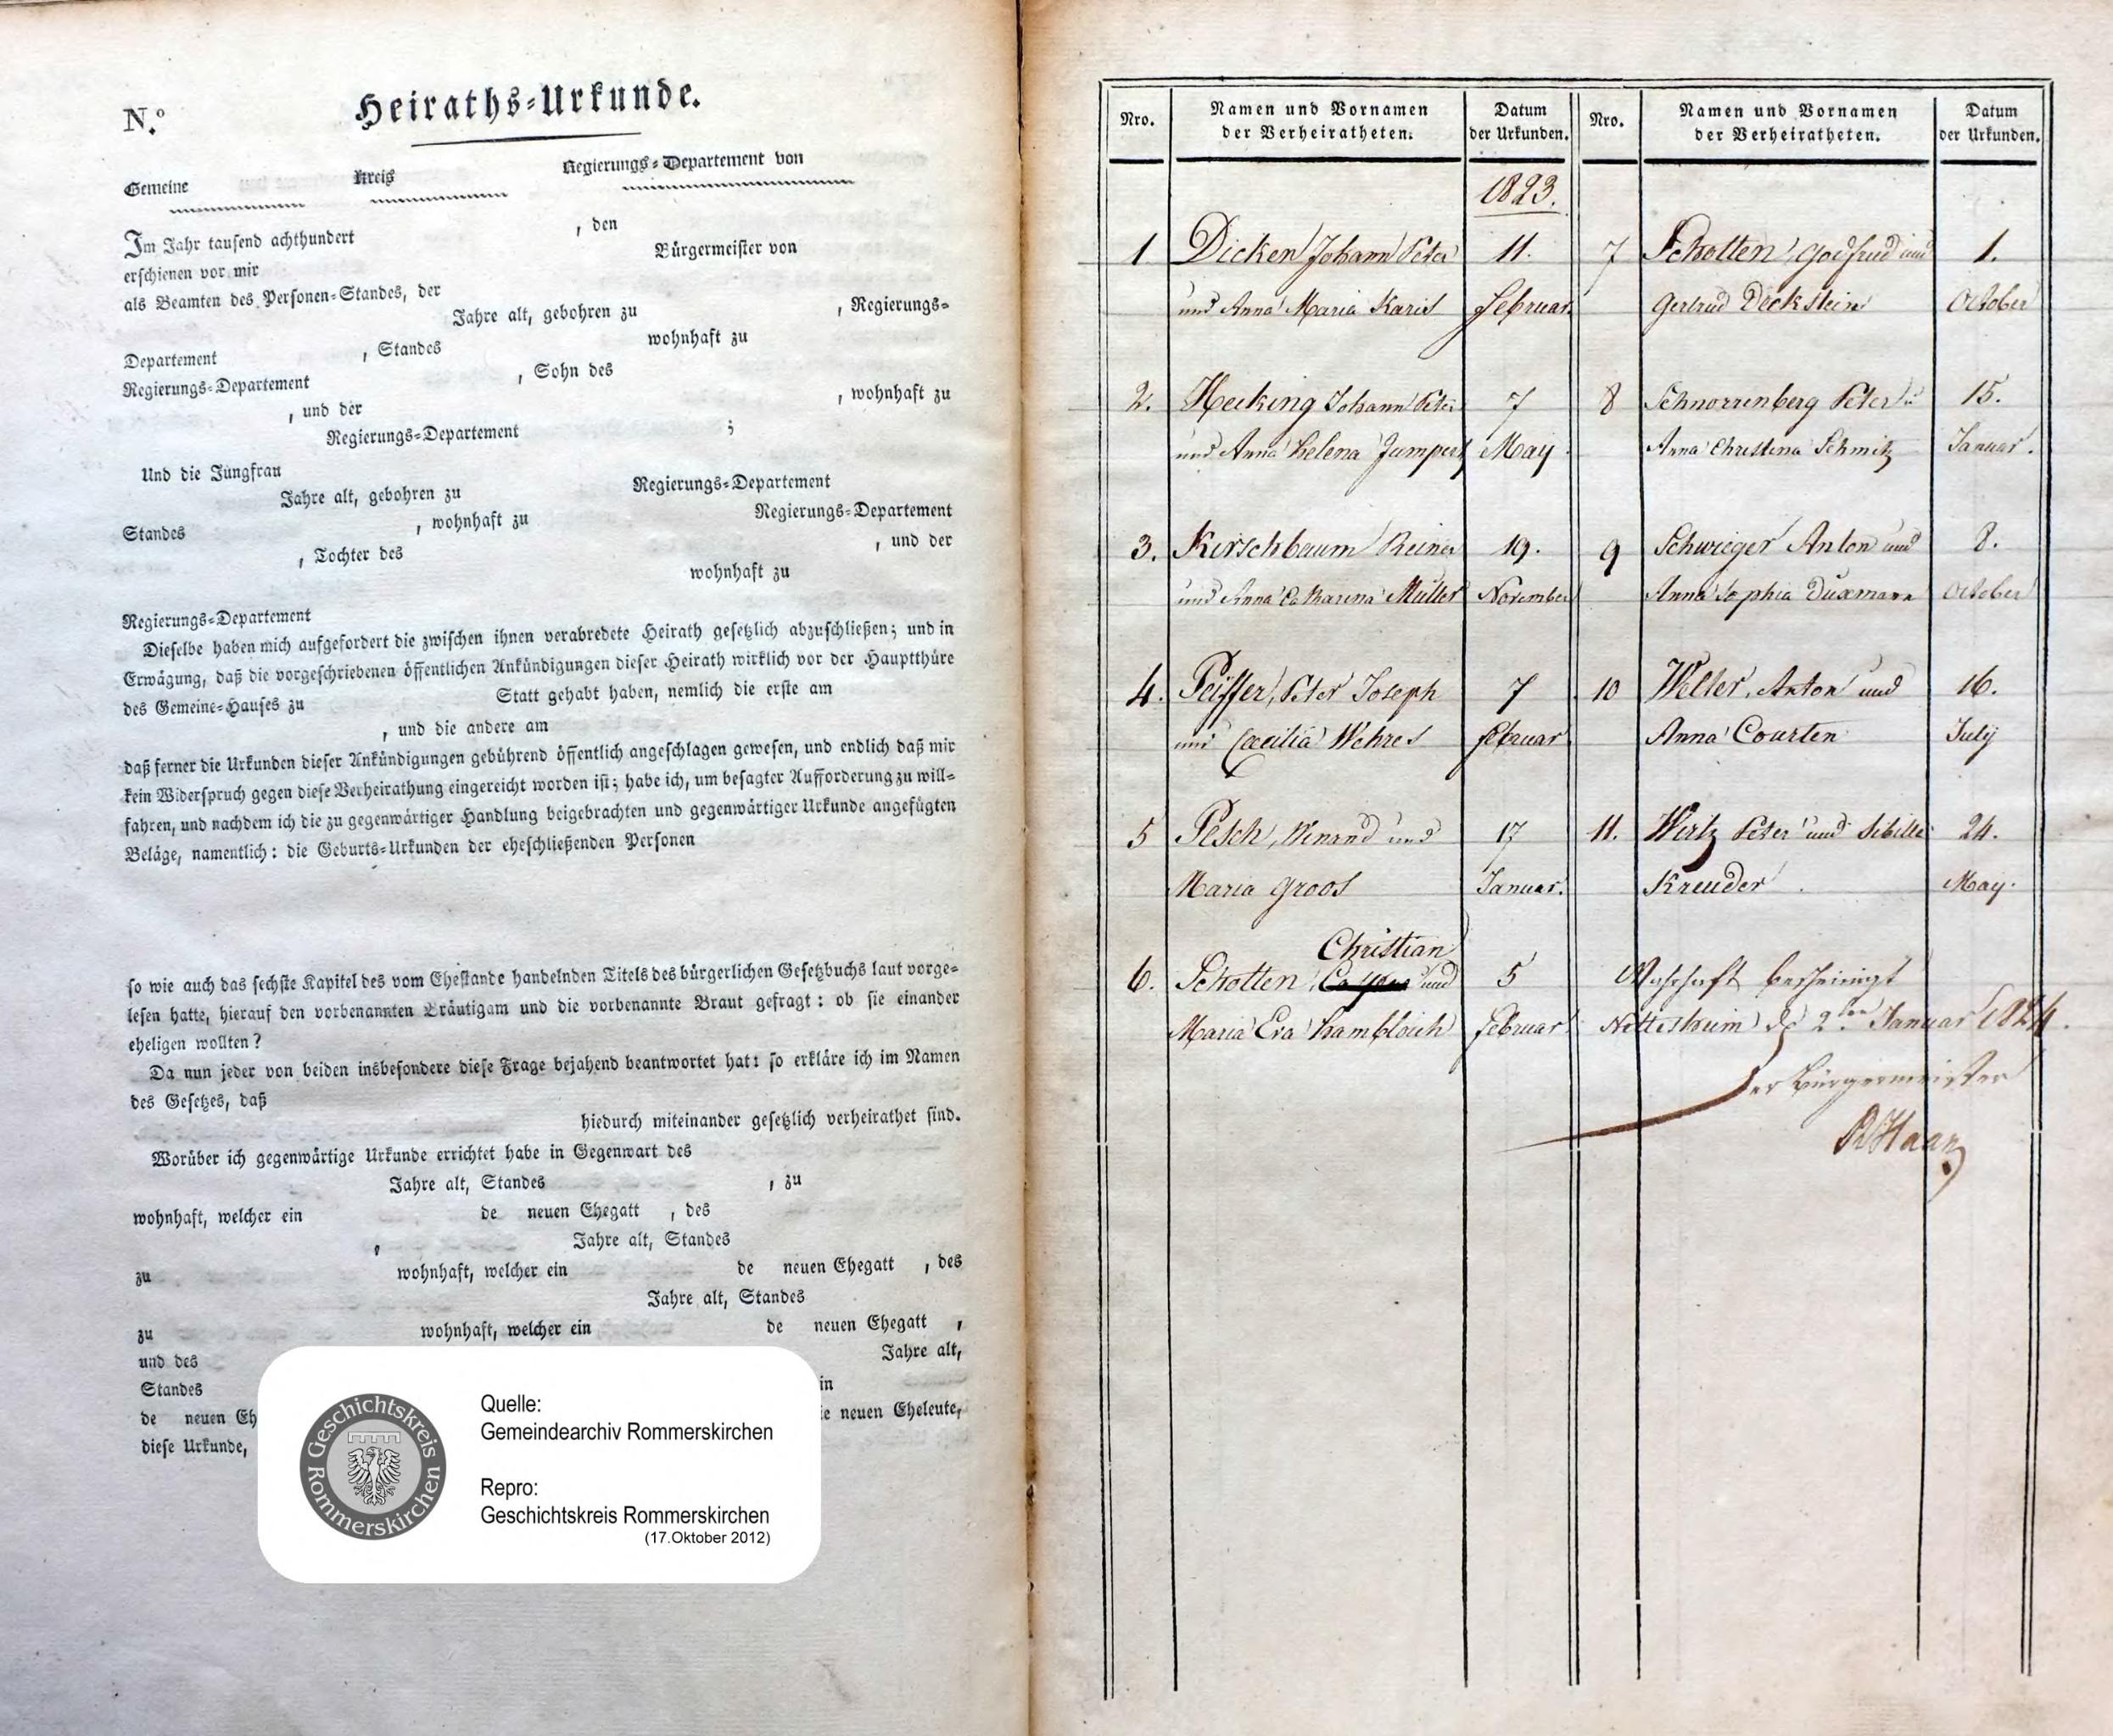 N.º
Heiraths-Urkunde.
Gemeine Kreis Regierungs-Departement von
Im Jahr tausend achthundert , den
erschienen vor mir Bürgermeister von
als Beamten des Personen-Standes, der
Jahre alt, gebohren zu , Regierungs-
Departement , Standes wohnhaft zu
Regierungs-Departement , Sohn des
, und der , wohnhaft zu
Regierungs-Departement ;
Und die Jungfrau
Jahre alt, gebohren zu Regierungs-Departement
Standes , wohnhaft zu Regierungs-Departement
, Tochter des , und der
wohnhaft zu
Regierungs-Departement
Dieselbe haben mich aufgefordert die zwischen ihnen verabredete Heirath gesetzlich abzuschließen; und in
Erwägung, daß die vorgeschriebenen öffentlichen Ankündigungen dieser Heirath wirklich vor der Hauptthüre
des Gemeine-Hauses zu Statt gehabt haben, nemlich die erste am
, und die andere am
daß ferner die Urkunden dieser Ankündigungen gebührend öffentlich angeschlagen gewesen, und endlich daß mir
kein Widerspruch gegen diese Verheirathung eingereicht worden ist; habe ich, um besagter Aufforderung zu will-
fahren, und nachdem ich die zu gegenwärtiger Handlung beigebrachten und gegenwärtiger Urkunde angefügten
Beläge, namentlich: die Geburts-Urkunden der eheschließenden Personen
so wie auch das sechste Kapitel des vom Ehestande handelnden Titels des bürgerlichen Gesetzbuchs laut vorge-
lesen hatte, hierauf den vorbenannten Bräutigam und die vorbenannte Braut gefragt: ob sie einander
eheligen wollten?
Da nun jeder von beiden insbesondere diese Frage bejahend beantwortet hat: so erkläre ich im Namen
des Gesetzes, daß
hiedurch miteinander gesetzlich verheirathet sind.
Worüber ich gegenwärtige Urkunde errichtet habe in Gegenwart des
Jahre alt, Standes , zu
wohnhaft, welcher ein de neuen Ehegatt , des
, Jahre alt, Standes
zu wohnhaft, welcher ein de neuen Ehegatt , des
Jahre alt, Standes
zu wohnhaft, welcher ein de neuen Ehegatt ,
und des Jahre alt,
Standes in
de neuen Eh ie neuen Eheleute,
diese Urkunde,
Geschichtskreis Rommerskirchen
Quelle:
Gemeindearchiv Rommerskirchen
Repro:
Geschichtskreis Rommerskirchen
(17.Oktober 2012)
Nro. Namen und Vornamen der Verheiratheten. Datum der Urkunden.
1823.
1. Dicken Johann Peter 11.
und Anna Maria Karis Februar
2. Hecking Johann Peter 7
und Anna Helena Jumpertz May
3. Kirschbaum Reiner 19.
und Anna Catharina Müller November
4. Peiffer, Peter Joseph 7
und Caecilia Wehres Februar
5 Pesch, Winand und 17
Maria Groos Januar.
Christian
6. Schotten und 5
Maria Eva Hambloch Februar
Nro. Namen und Vornamen der Verheiratheten. Datum der Urkunden.
7 Schotten, Godfried und 1.
Gertrud Deckstein October
8 Schnorrenberg Peter u 15.
Anna Christina Schmitz Januar.
9 Schwieger Anton und 8.
Anna Sophia Duxmann October
10 Weller, Anton und 16.
Anna Courten July
11. Wirtz Peter und Sibilla 24.
Kreuder May.
Wahrhaft bescheinigt
Nettesheim d 2ten Januar 1824.
Der Bürgermeister